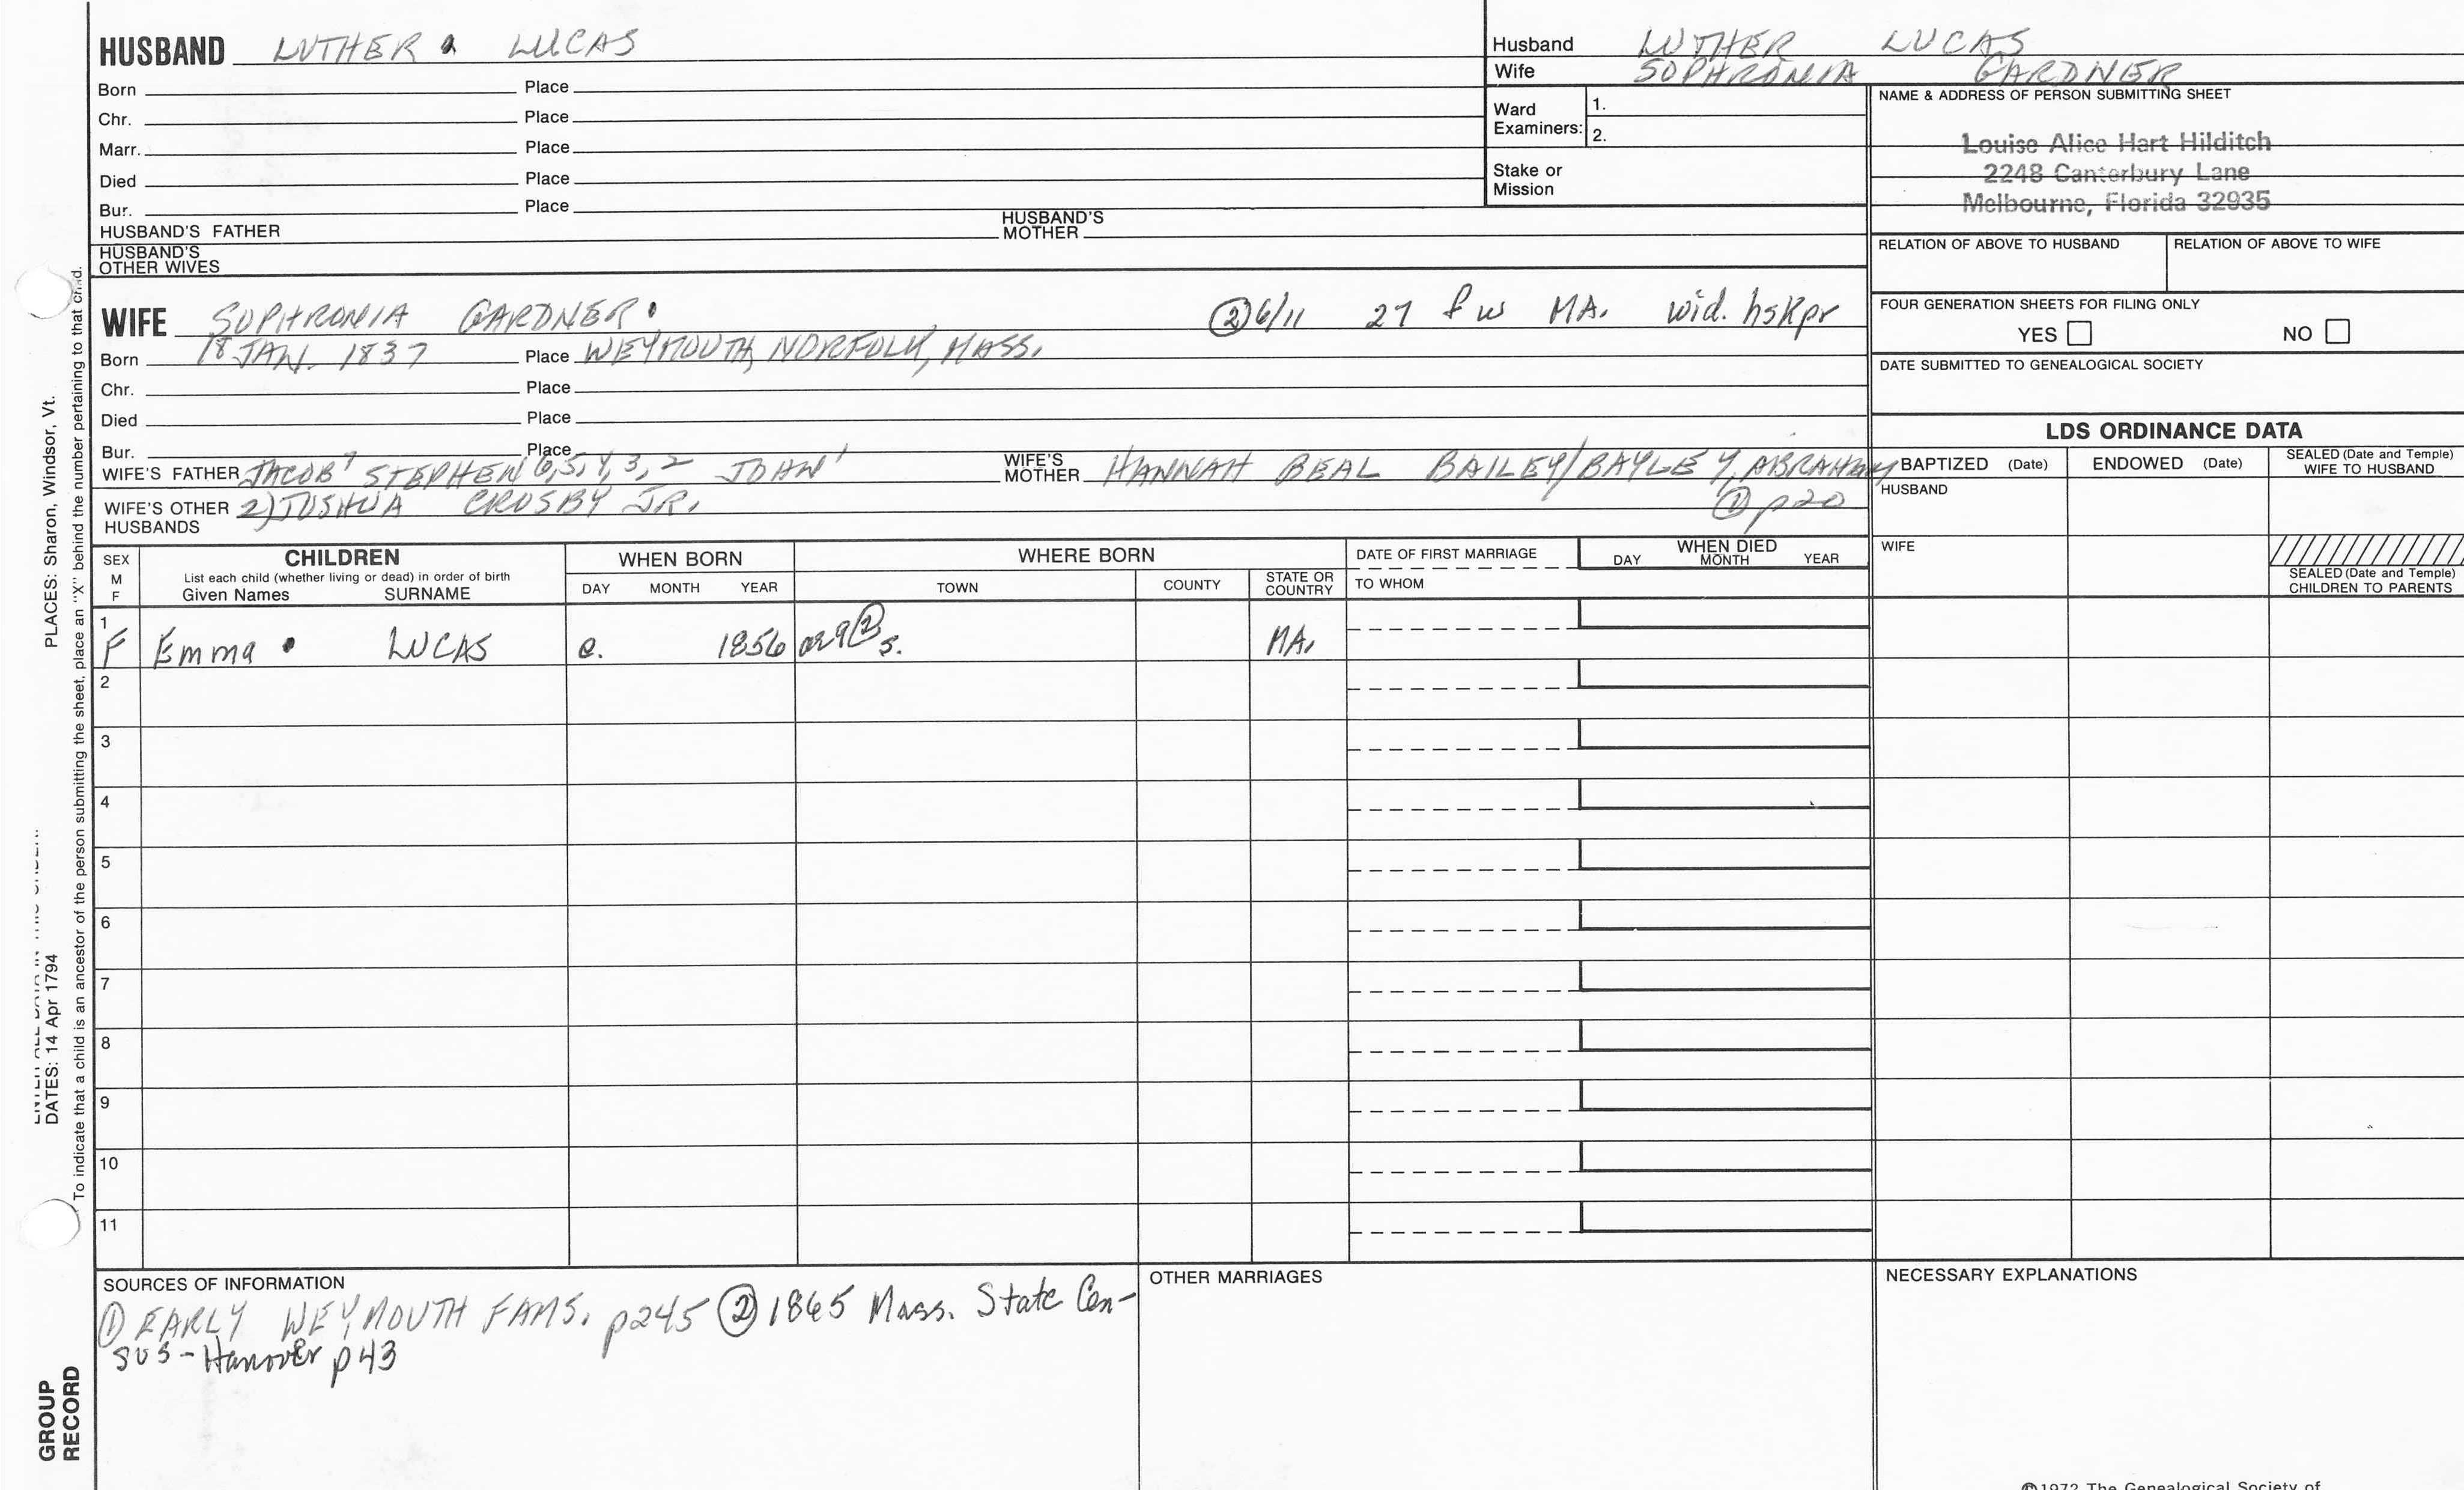 HUSBAND LUTHER LUCAS
Born Place
Chr. Place
Marr. Place
Died Place
Bur. Place
HUSBAND'S FATHER HUSBAND'S MOTHER
HUSBAND'S OTHER WIVES
Husband LUTHER LUCAS
Wife SOPHRONIA GARDNER
Ward Examiners: 1.
2.
Stake or Mission
NAME & ADDRESS OF PERSON SUBMITTING SHEET
Louise Alice Hart Hilditch
2248 Canterbury Lane
Melbourne, Florida 32935
RELATION OF ABOVE TO HUSBAND RELATION OF ABOVE TO WIFE
FOUR GENERATION SHEETS FOR FILING ONLY
YES NO
DATE SUBMITTED TO GENEALOGICAL SOCIETY
WIFE SOPHRONIA GARDNER ② 6/11 27 f w MA. wid. hskpr
Born 18 JAN. 1837 Place WEYMOUTH, NORFOLK, MASS.
Chr. Place
Died Place
Bur. Place
WIFE'S FATHER JACOB7 STEPHEN 6,5,4,3,2 JOHN1 WIFE'S MOTHER HANNAH BEAL BAILEY/BAYLEY, ABRAHAM
WIFE'S OTHER HUSBANDS 2) JOSHUA CROSBY JR. ① p20
LDS ORDINANCE DATA
BAPTIZED (Date) ENDOWED (Date) SEALED (Date and Temple) WIFE TO HUSBAND
HUSBAND
WIFE
SEALED (Date and Temple) CHILDREN TO PARENTS
SEX M F
CHILDREN
List each child (whether living or dead) in order of birth
Given Names SURNAME
WHEN BORN
DAY MONTH YEAR
WHERE BORN
TOWN COUNTY STATE OR COUNTRY
DATE OF FIRST MARRIAGE
TO WHOM
WHEN DIED
DAY MONTH YEAR
1
F Emma LUCAS c. 1856 ② MA.
2
3
4
5
6
7
8
9
10
11
SOURCES OF INFORMATION
① EARLY WEYMOUTH FAMS. p245 ② 1865 Mass. State Cen-
sus - Hanover p43
OTHER MARRIAGES
NECESSARY EXPLANATIONS
©1972 The Genealogical Society of
PLACES: Sharon, Windsor, Vt.
DATES: 14 Apr 1794
To indicate that a child is an ancestor of the person submitting the sheet, place an "X" behind the number pertaining to that child.
GROUP
RECORD